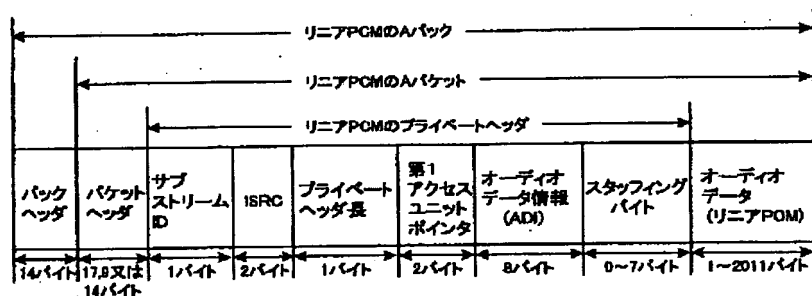 リニアPCMのAパック
リニアPCMのAパケット
リニアPCMのプライベートヘッダ
パック
ヘッダ
パケット
ヘッダ
サブ
ストリーム
ID
ISRC
プライベート
ヘッダ長
第1
アクセス
ユニット
ポインタ
オーディオ
データ情報
(ADI)
スタッフィング
バイト
オーディオ
データ
(リニアPCM)
14バイト
17,9又は
14バイト
1バイト
2バイト
1バイト
2バイト
8バイト
0～7バイト
1～2011バイト